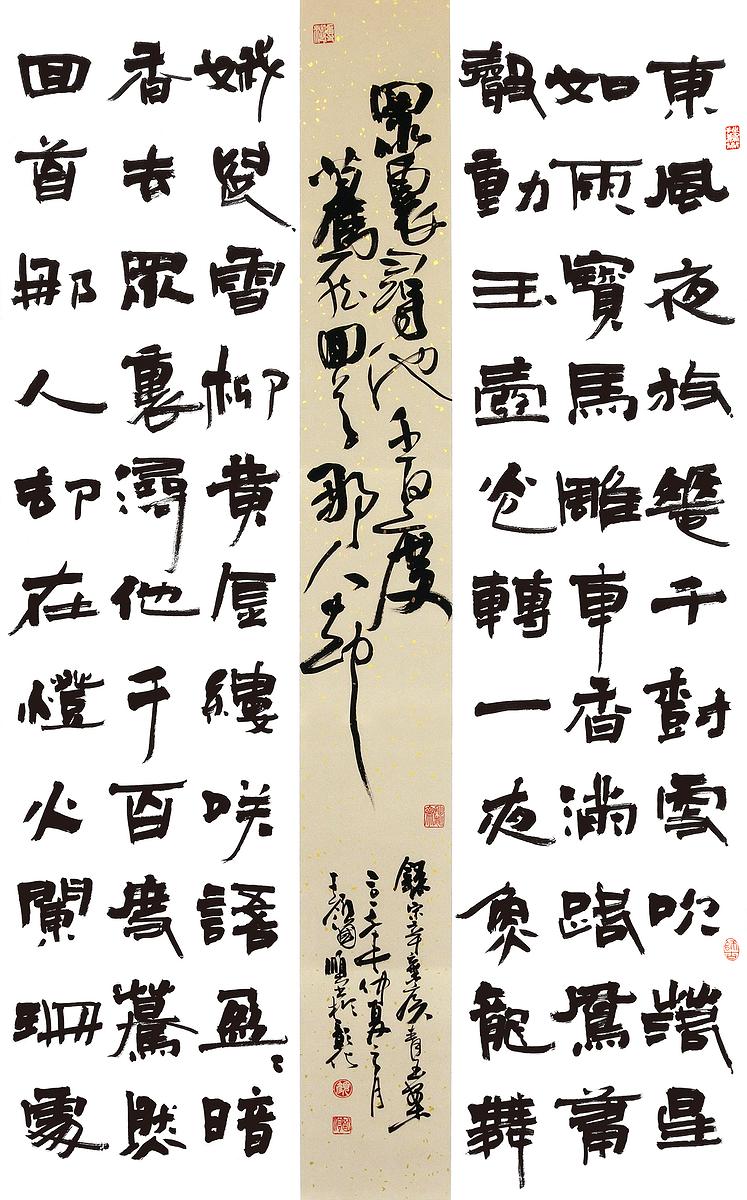 東風夜放花千樹雪吹落星
如雨寶馬雕車香滿路鳳簫
聲動玉壺光轉一夜魚龍舞
眾裏尋他千百度
驀然回首那人卻
錄宋辛棄疾青玉案
二〇一六年仲夏之月
書於彰化
娥雪柳黄金縷咲語盈〻暗
香去眾裏尋他千百度驀然
回首那人卻在燈火闌珊處